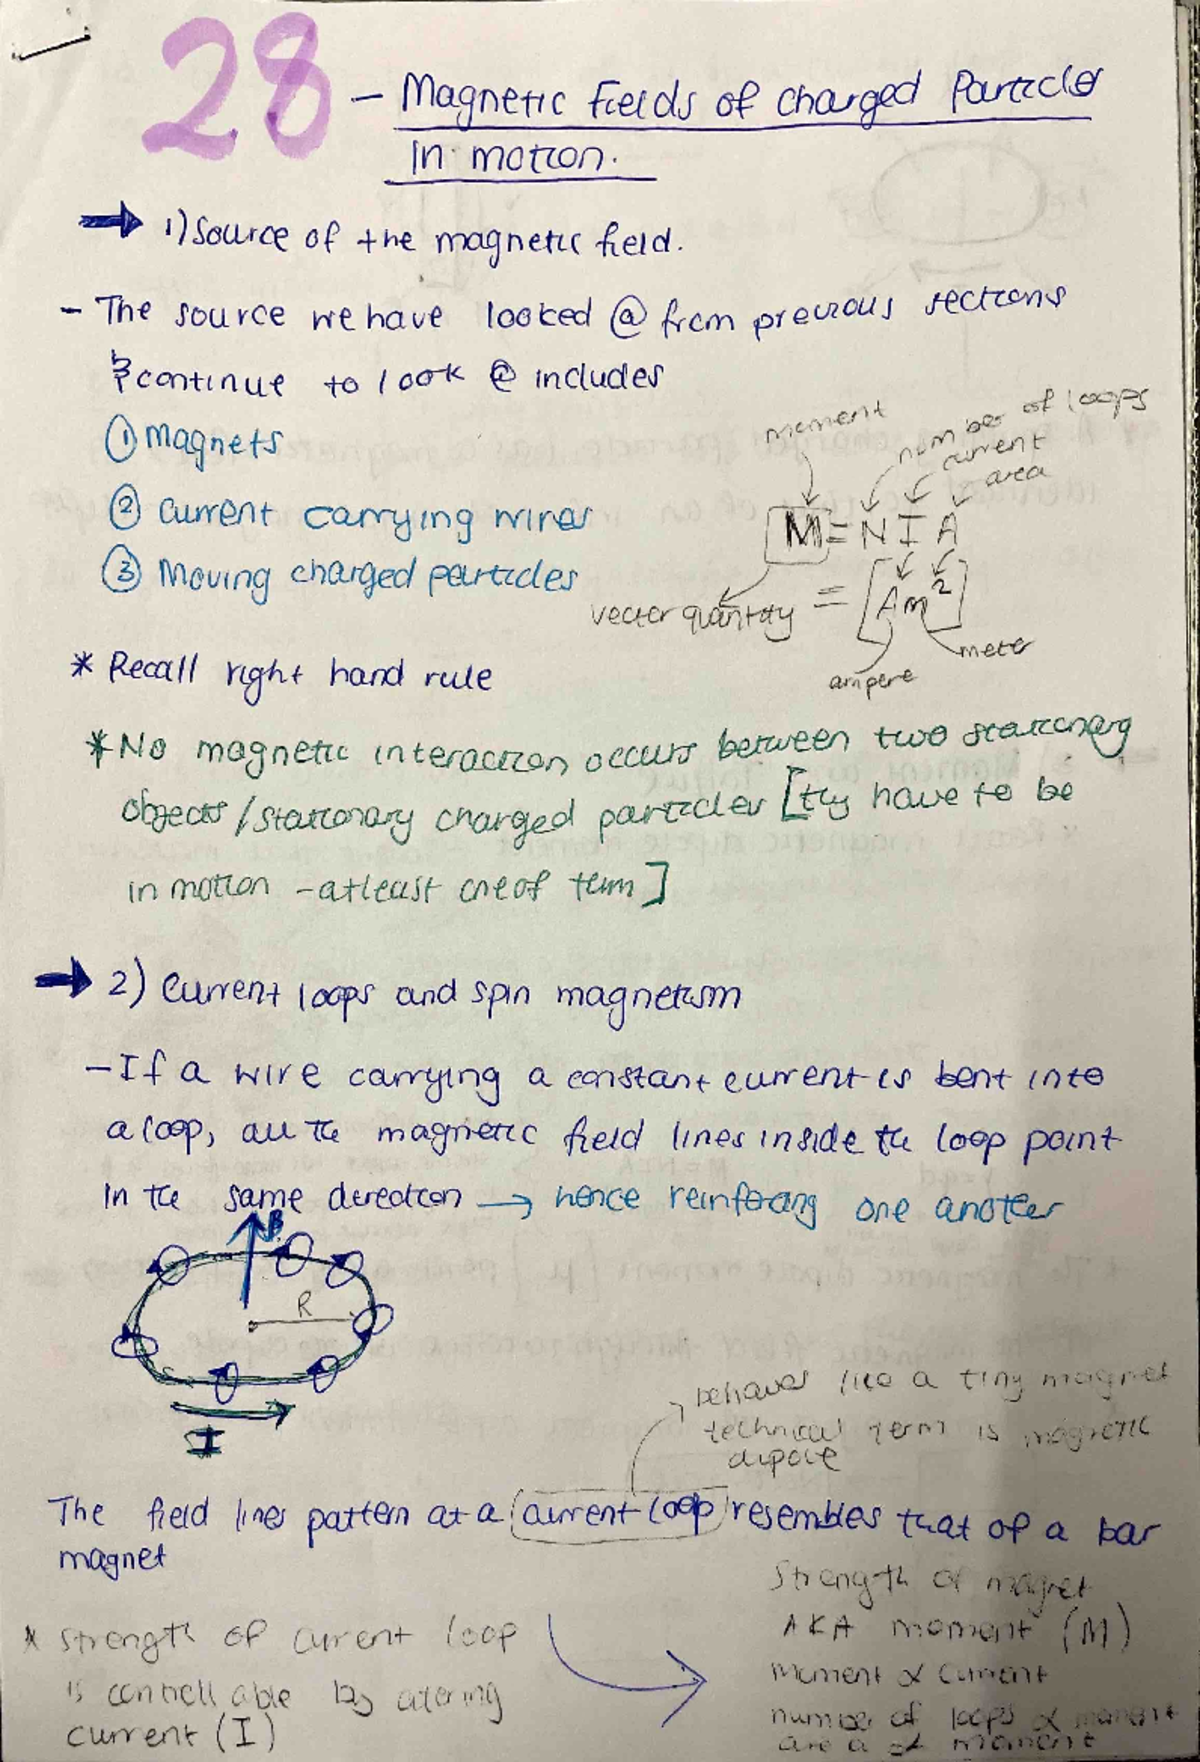 28 - Magnetic Fields of Charged Particles
In motion.
→ 1) Source of the magnetic field.
- The source we have looked @ from previous sections
& continue to look @ includes
① Magnets
② Current carrying wires
③ Moving charged particles
moment
number of loops
current
area
M = N I A
vector quantity = [Am²]
ampere
meter
* Recall right hand rule
* No magnetic interaction occurs between two stationary
objects / stationary charged particles [they have to be
in motion - atleast one of them]
→ 2) Current loops and spin magnetism
- If a wire carrying a constant current is bent into
a loop, all the magnetic field lines inside the loop point
In the same direction → hence reinforcing one another
B
R
I
behaves like a tiny magnet
technical term is magnetic
dipole
The field lines pattern at a current loop resembles that of a bar
magnet
* Strength of current loop
is controllable by altering
current (I)
Strength of magnet
AKA moment (M)
Moment ∝ current
number of loops ∝ moment
area ∝ moment